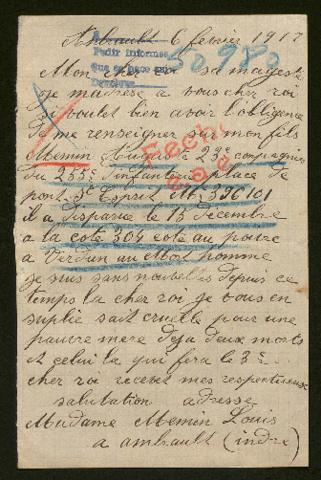 Ambrault 6 février 1917
Pedir informes
que se hace por
50980
Mon cher roi sa majesté
je madrese a vous cher roi
si voulet bien avoir l'obligence
de me renseigner sur mon fils
Memin 22e compagnie
Fecha
du 255e infanterie place de
pont St Esprit Mle 396101
il a disparue le 15 Décembre
a la cote 304 coté au poivre
a Verdun au Mort homme
je suis sans nouvelles depuis ce
temps la cher roi je vous en
suplie sait cruelle pour une
pauvre mere deja deux morts
et celui la qui fera le 3e
cher roi recevez mes respectueuse
salutation adresse
Madame Memin Louis
a ambrault (indre)